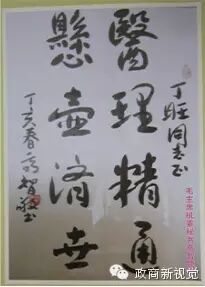 丁旺同志正
醫理精通
懸壺濟世
丁亥春高智書
毛主席机要秘书高智题
政商新视觉